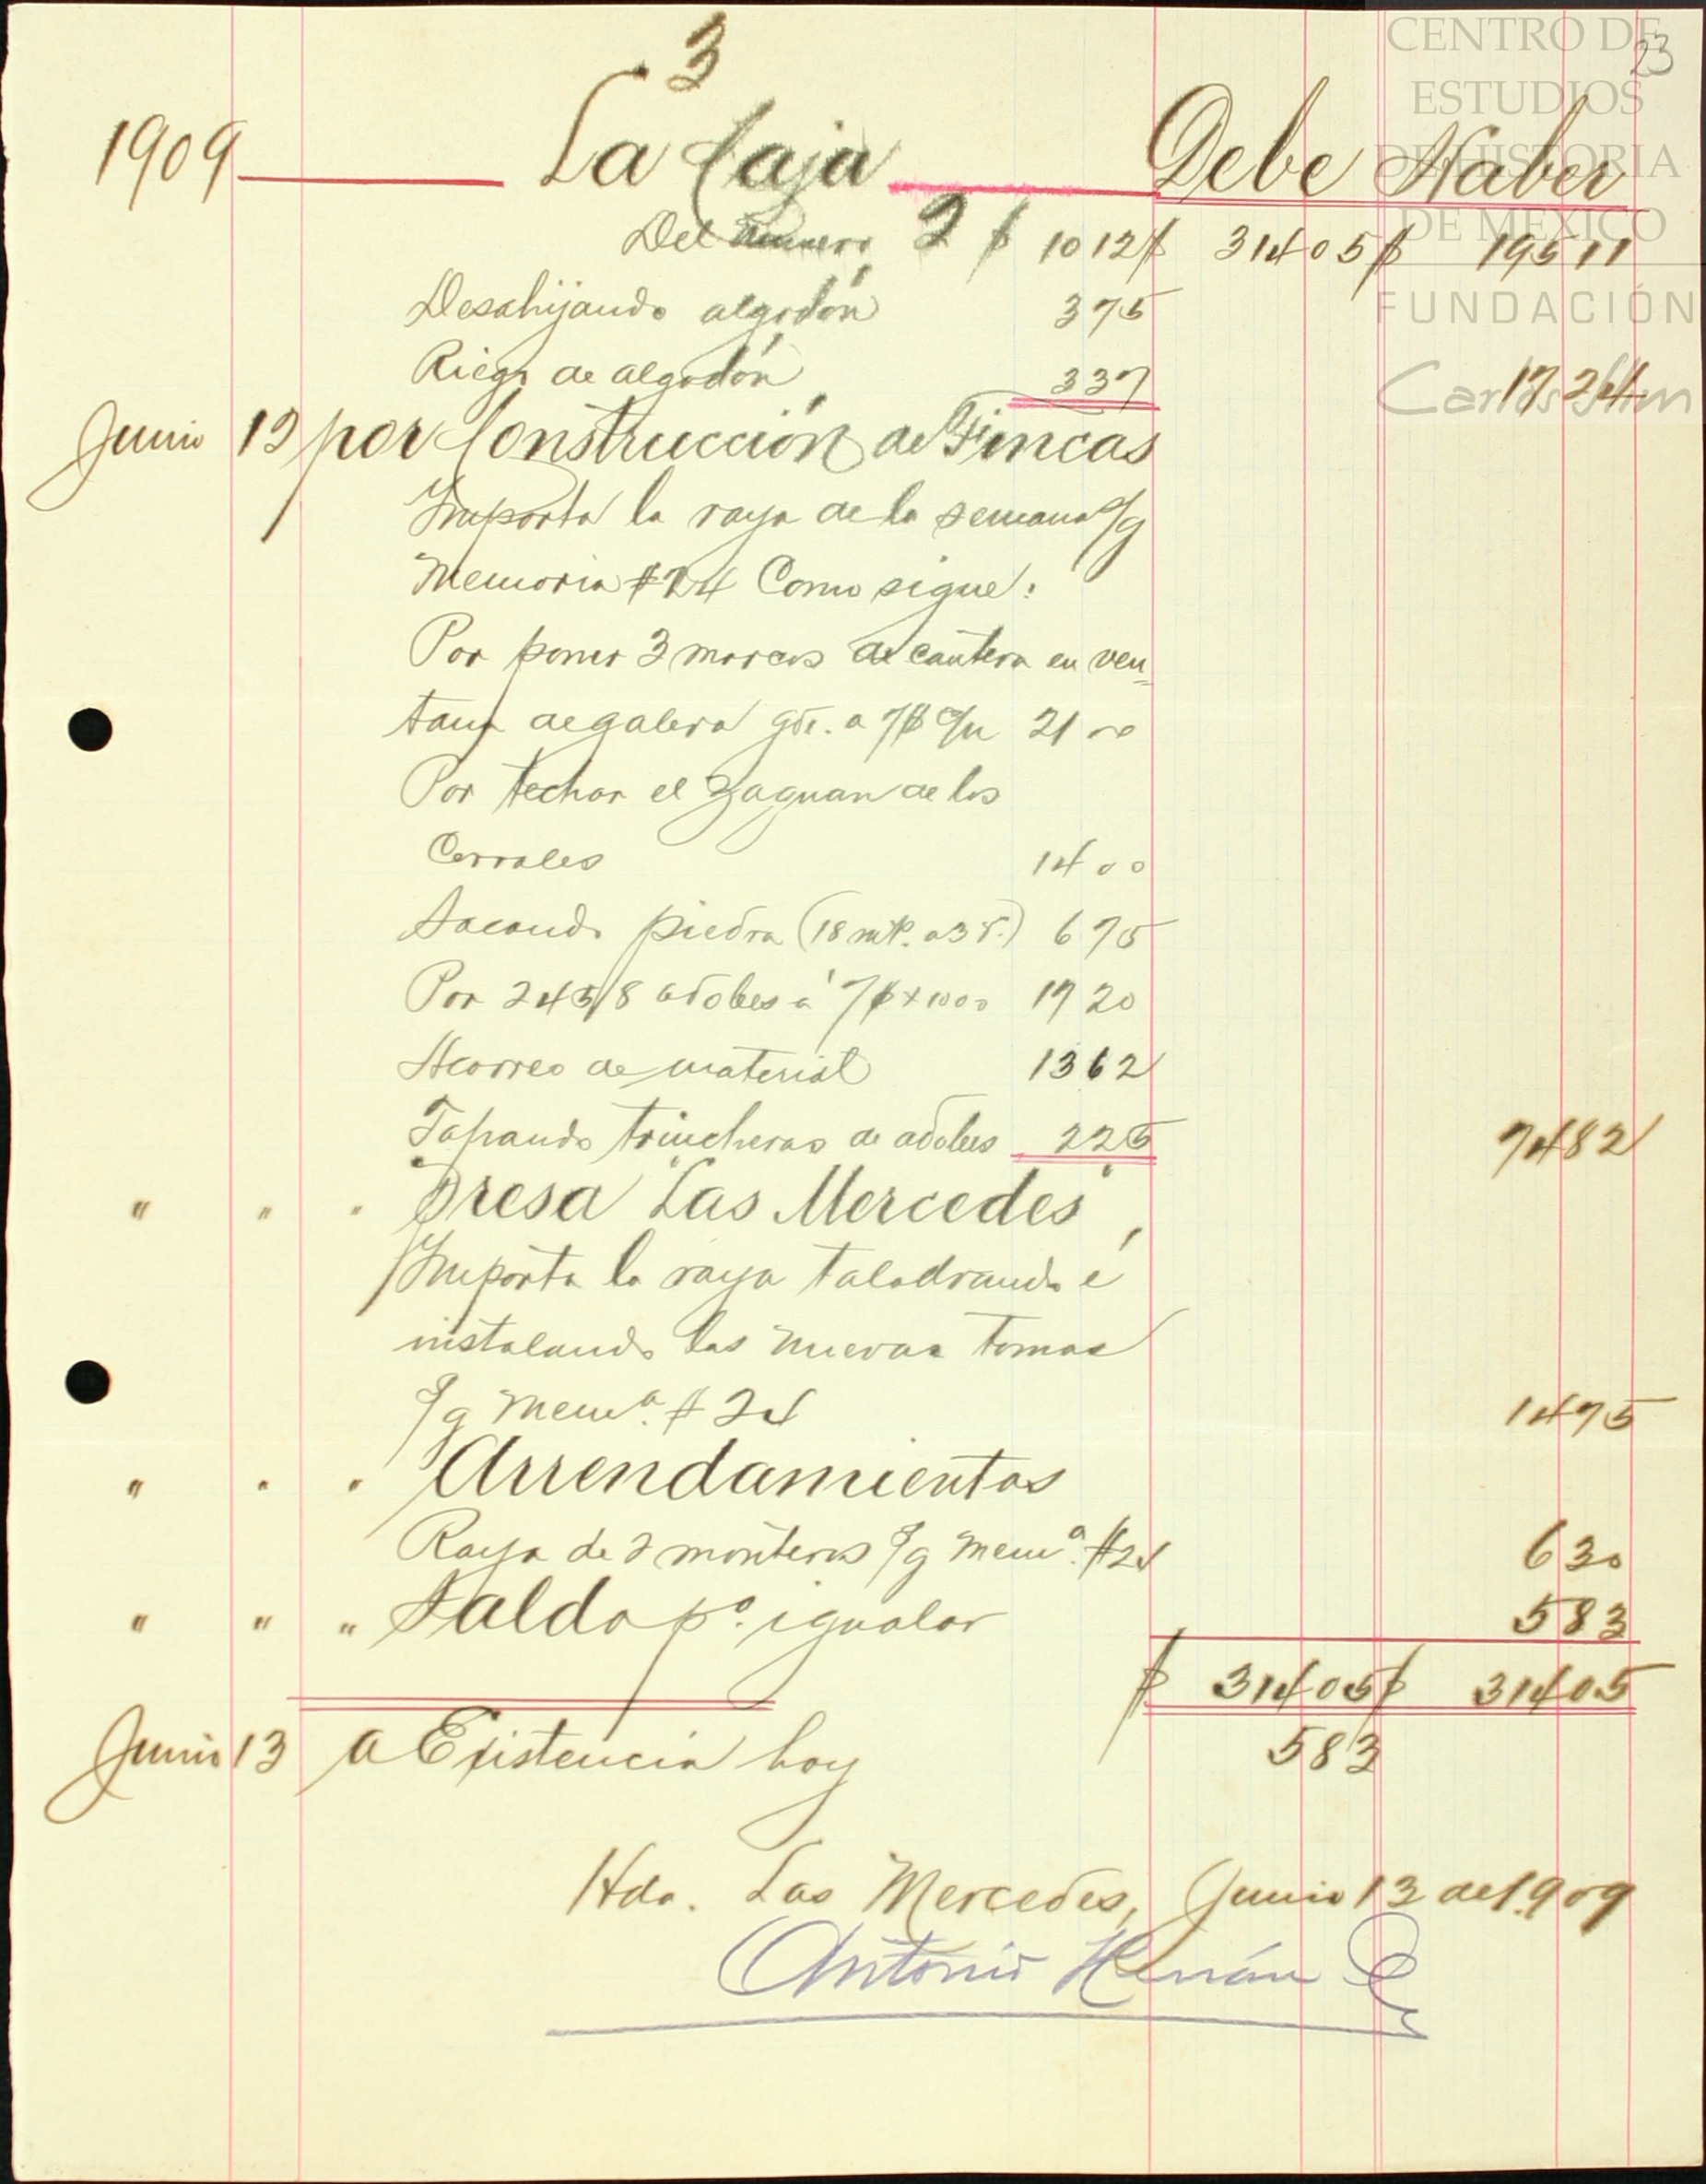 3
23
CENTRO DE
ESTUDIOS
DE HISTORIA
DE MEXICO
FUNDACIÓN
Carlos Slim
1909 La Caja Debe Haber
Del número 2 $ 10 12 $ 314 05 $ 195 11
Desahijando algodón 3 75
Riego de algodón 3 37 17 24
Junio 12 por Construcción de Fincas
Importa la raya de la semana s/g
Memoria #24 Como sigue:
Por poner 3 marcos de cantera en ven=
tana de galera gde. a 7$ c/u 21 00
Por techar el Zaguan de los
Corrales 14 00
Sacando piedra (18 mt. a 3 r.) 6 75
Por 2458 adobes a 7$ x 1000 17 20
Acarreo de material 13 62
Tapando trincheras de adobes 2 25 74 82
" " " Presa "Las Mercedes",
Importa la raya taladrando é
instalando las nuevas tomas
s/g Mema. # 24 14 75
" " " Arrendamientos
Raya de 2 monteros s/g Mema. #24 6 30
" " " Saldo pa. igualar 5 83
$ 314 05 $ 314 05
Junio 13 a Existencia hoy 5 83
Hda. Las Mercedes, Junio 13 de 1.909
Antonio Hernán